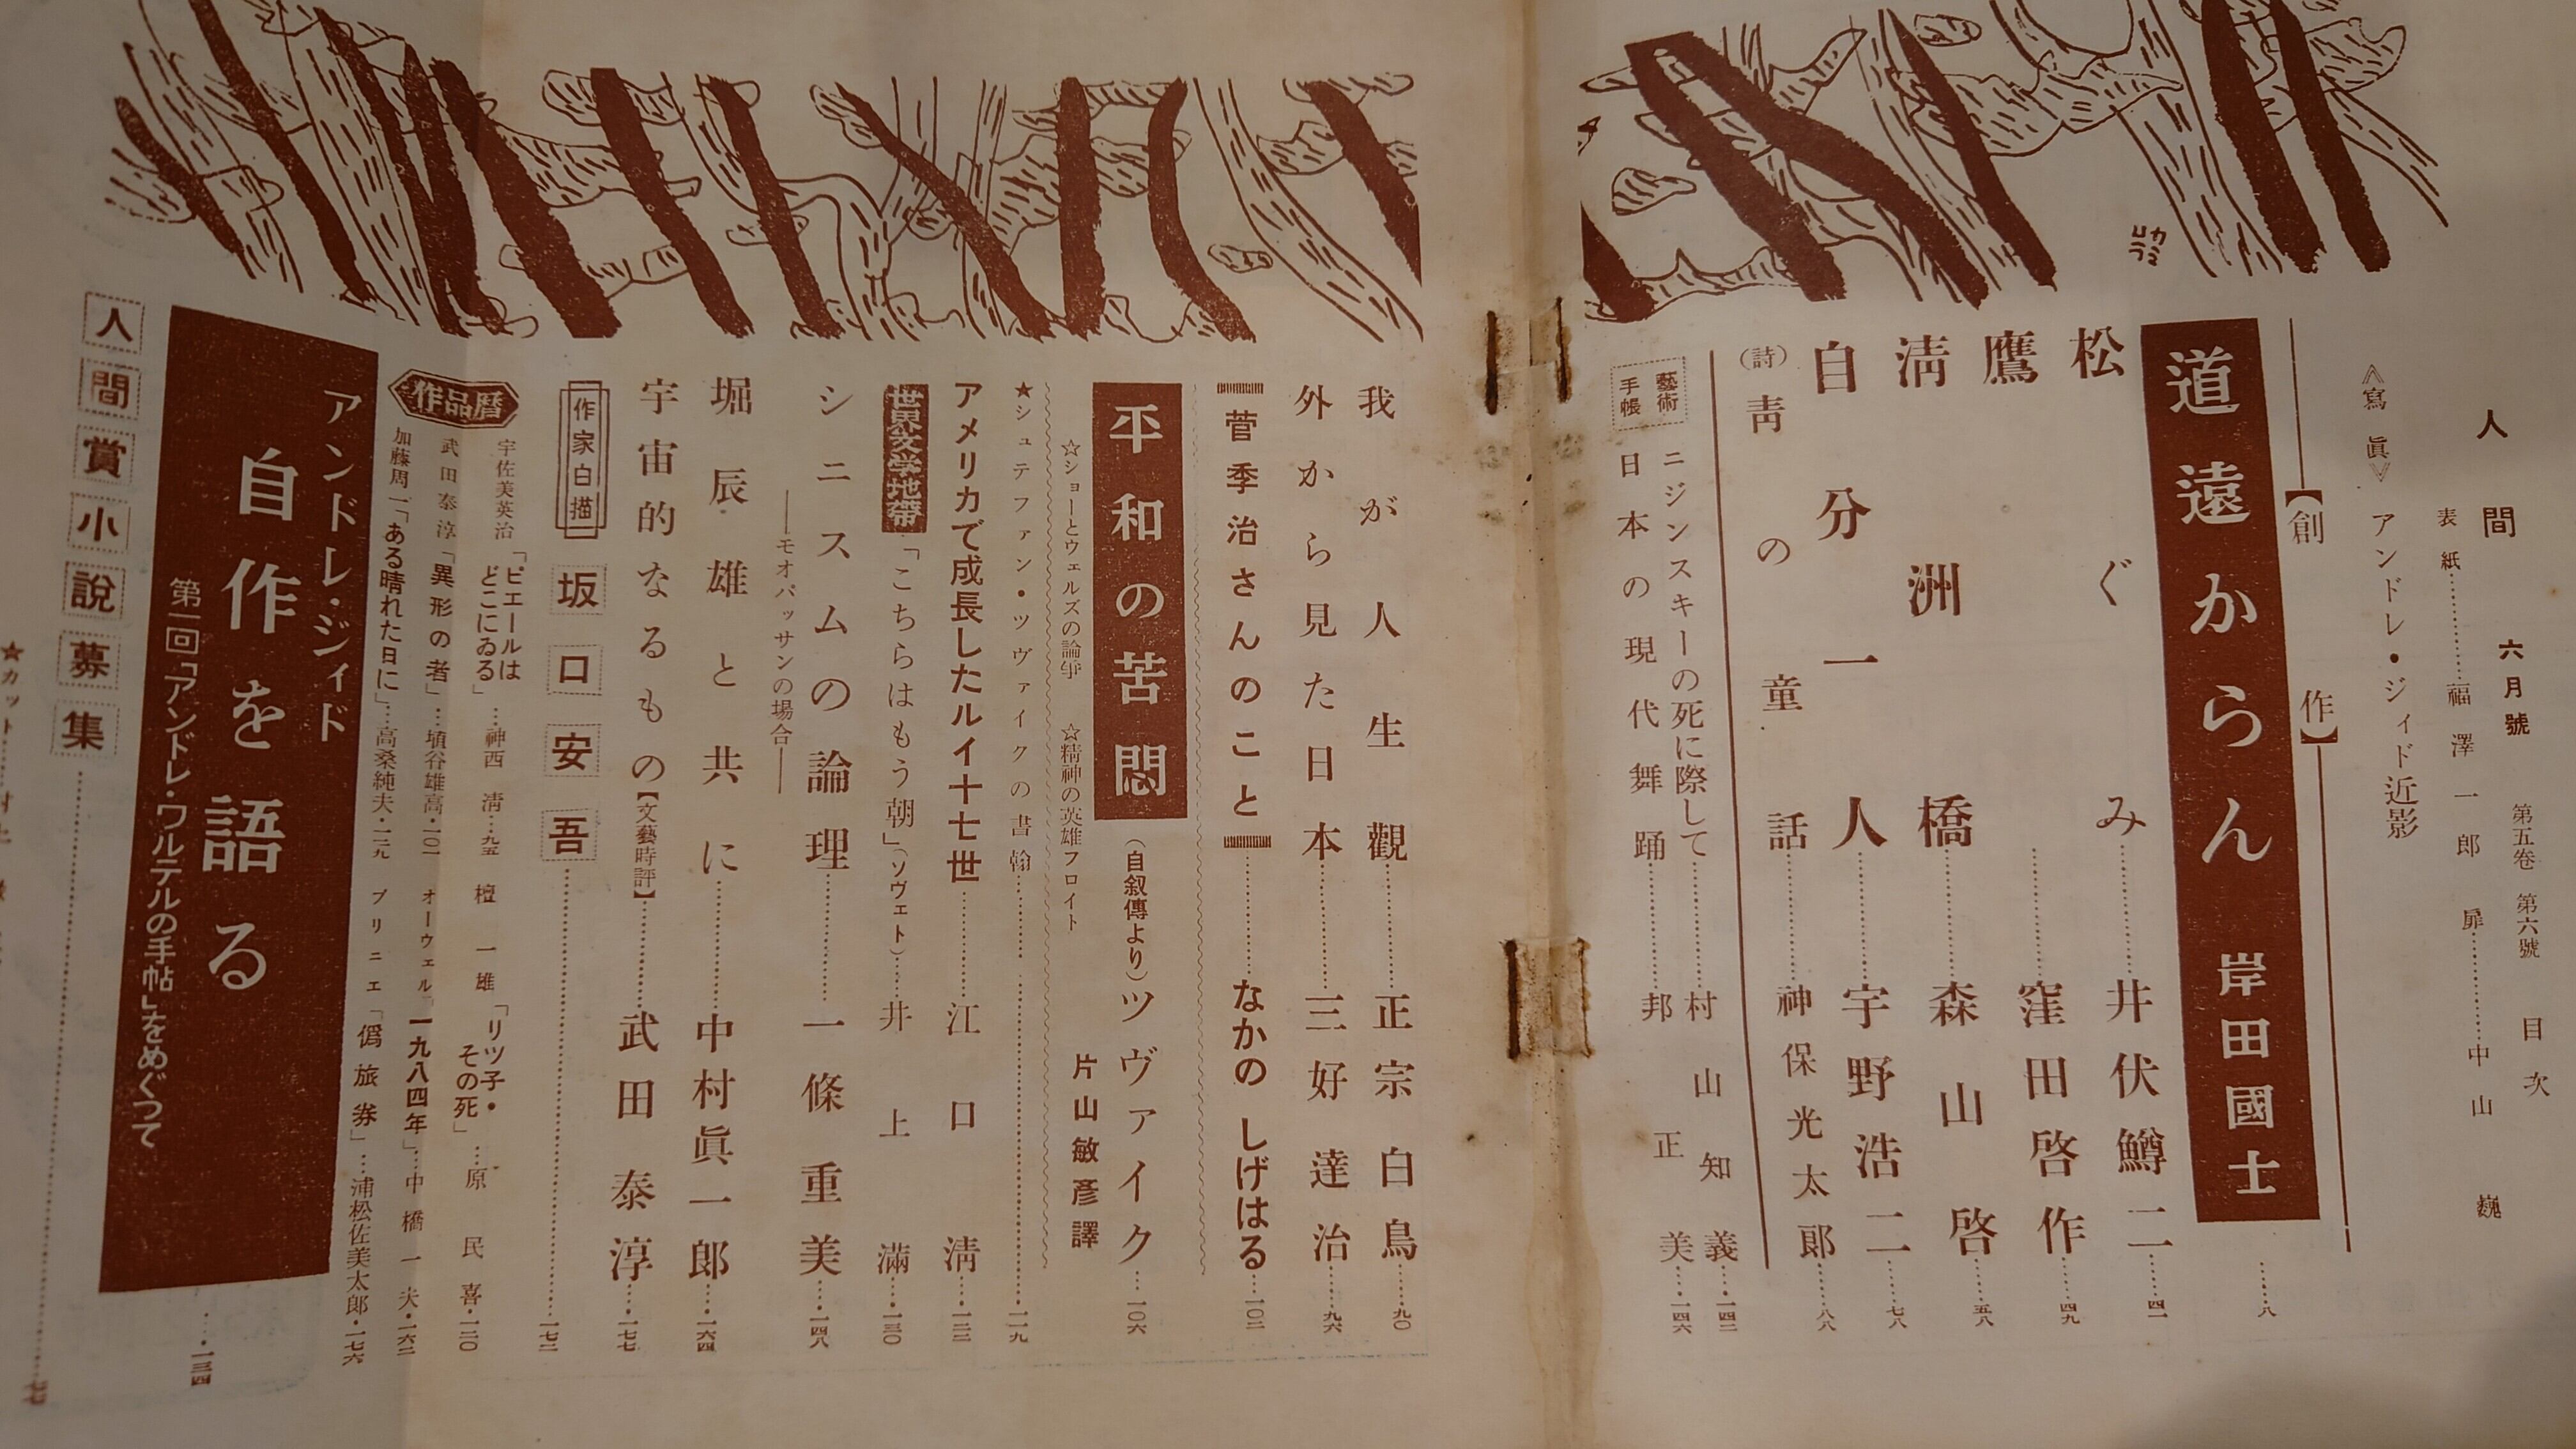 人間 六月號 第五卷 第六號 目次
表紙………福澤一郎 扉………中山巍
≪寫眞≫ アンドレ・ジィド近影
【創作】
道遠からん 岸田國士……八
松ぐみ………井伏鱒二……四一
鷹………窪田啓作……四九
淸洲橋………森山啓……五八
自分一人………宇野浩二……七八
(詩)靑の童話………神保光太郎……八八
藝術手帳
ニジンスキーの死に際して………村山知義…一四二
日本の現代舞踊………邦正美…一四六
カミロラ
我が人生觀………正宗白鳥……九〇
外から見た日本………三好達治……九六
菅季治さんのこと………なかの しげはる……一〇二
平和の苦悶 (自叙傳より) ツヴァイク…一〇六
片山敏彥譯
☆ショーとウェルズの論爭 ☆精神の英雄フロイト
★シュテファン・ツヴァイクの書翰………一一九
アメリカで成長したルイ十七世………江口淸・一二二
世界文学地帶
「こちらはもう朝」(ソヴェト)……井上滿・一三〇
シニスムの論理………一條重美・一四八
――モオパッサンの場合――
堀辰雄と共に………中村眞一郎・一六四
宇宙的なるもの【文藝時評】………武田泰淳・一七七
作家白描
坂口安吾………一七二
作品暦
宇佐美英治「ピエールはどこにゐる」…神西淸…九五
檀一雄「リツ子・その死」…原民喜・一二〇
武田泰淳「異形の者」…埴谷雄高・一〇一
オーウェル「一九八四年」…中橋一夫・一六二
加藤周一「ある晴れた日に」…高桑純夫・一二九
プリニエ「僞旅券」…浦松佐美太郎・一七六
アンドレ・ジィド
自作を語る
第一回「アンドレ・ワルテルの手帖」をめぐつて
…・一三四
人間賞小說募集………七七
★カット